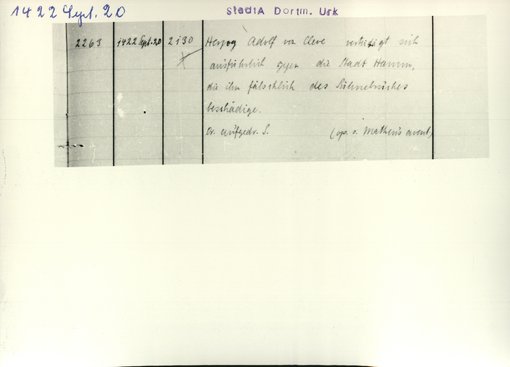 1422 Sept. 20
StadtA Dortm. Urk
2263 1422 Sept. 20 2130 Herzog Adolf von Cleve verteidigt sich
ausführlich gegen die Stadt Hamm,
die ihn fälschlich des
beschädige.
Or. aufgedr. S. (op. s. Mathei avent)